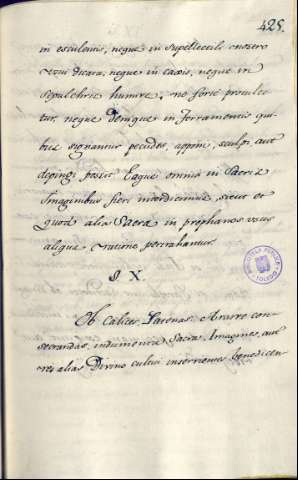 425.
in esculentis, neque in supellectili
vsui dicata, neque in casis, neque in
sepulchris humire, ne forte proculce
tur, neque denique in ferramentis qui
bus signantur pecudes, appini, sculpi, aut
depingi possit. Eaque omnia in sacris
Imaginibus fieri interdicimus, sicut et
quod alia Sacra in prophanos vsus
aliqua ratione pertrahantur.
§. X.
Ob Calices, Patenas, Aras con
secrandas, indumenta Sacra, Imagines, aut
res alias Divino cultui inservientes benedicen
BIBLIOTECA PUBLICA
TOLEDO